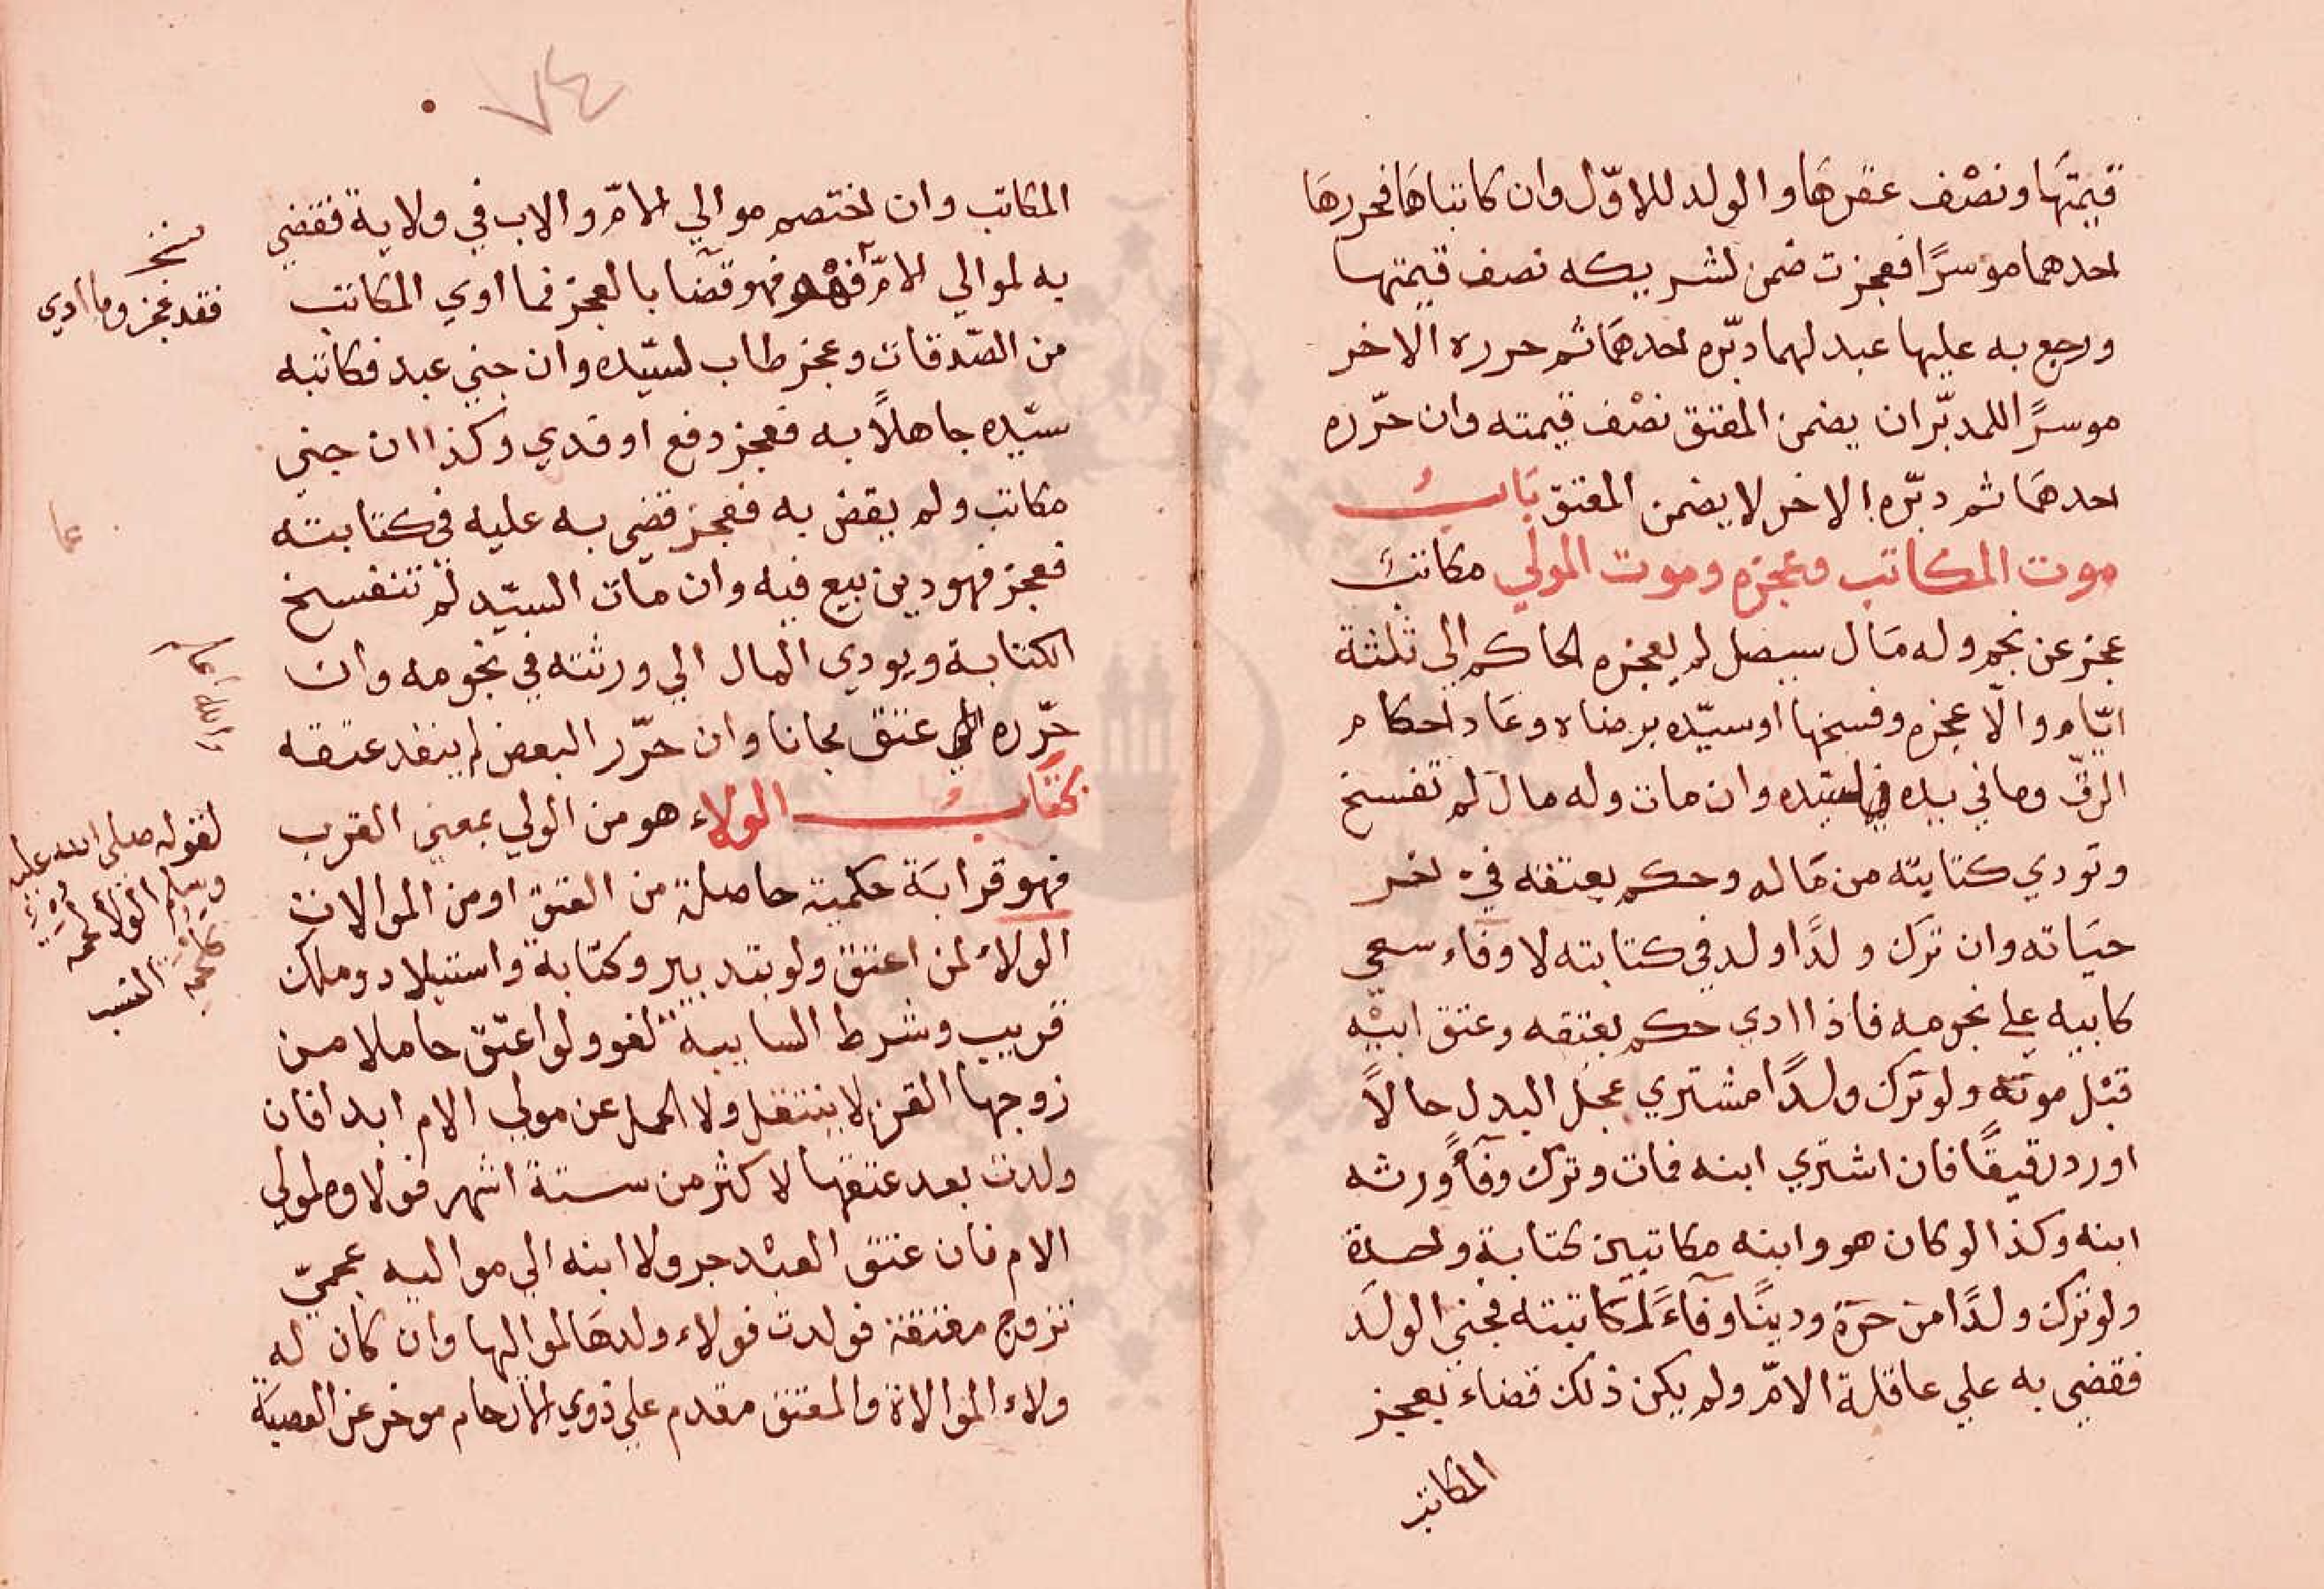 قيمتها ونصف عقرها والولد للاوّل وان كاتباها فحررها
احدهما موسرًا فعجزت ضمن لشريكه نصف قيمتها
ورجع به عليها عبد لهما دبّره احدهما ثم حرره الاخر
موسرًا للمدبّر ان يضمن المعتق نصف قيمته وان حرّره
احدهما ثم دبّره الاخر لا يضمن المعتق بابُ
موت المكاتب وعجزه وموت المولي مكاتبٌ
عجز عن نجم وله مال سيصل لم يعجزه الحاكم الي ثلثة
ايّام والّا عجزه وفسخها او سيّده برضاه وعاد احكام
الرقّ وما في يده لسيّده وان مات وله مال لم تفسخ
وتودي كتابته من ماله وحكم بعتقه في اخر
حياته وان ترك ولدًا ولد في كتابته لا وفاء سعي
كابيه علي نجومه فاذا ادي حكم بعتقه وعتق ابيه
قبل موته ولو ترك ولدًا مشتري عجل البدل حالاً
او رد رقيقًا فان اشتري ابنه فمات وترك وفآً ورثه
ابنه وكذا لو كان هو وابنه مكاتبين كتابة واحدة
ولو ترك ولدًا من حرّة ودينًا وفآءً لمكاتبته فجني الولد
فقضي به علي عاقلة الامّ ولم يكن ذلك قضاء بعجز
المكاتب
٧٤
المكاتب وان اختصم موالي الامّ والاب في ولاية فقضي
به لموالي الامّ فهو قضآ بالعجز فما اوي المكاتب
من الصّدقات وعجز طاب لسيّده وان جني عبد فكاتبه
سيّده جاهلاً به فعجز دفع او فدي وكذا ان جني
مكاتب ولم يقض به فعجز قضي به عليه في كتابته
فعجز فهو دين بيع فيه وان مات السيّد لم تنفسخ
الكتابة ويودي المال الي ورثته في نجومه وان
حرّره عتق مجانا وان حرّر البعض لم ينفد عتقه
كتابُ الولاء هو من الولي بمعني القرب
فهو قرابة حكمية حاصلة من العتق او من الموالات
الولاء لمن اعتق ولو بتدبير وكتابة واستيلاد وملك
قريب وشرط السايبة لغو ولو اعتق حاملا من
زوجها القن لا ينتقل ولا الحمل عن مولي الام ابدا فان
ولدت بعد عتقها لاكثر من ستة اشهر فولاوه لمولي
الام فان عتق العبد جر ولا ابنه الي مواليه عجميّ
تزوج معتقة فولدت فولاء ولدها لمواليها وان كان له
ولاء الموالاة والمعتق مقدم علي ذوي الارحام موخر عن العصبة
فقد عجز وما ادي
لقوله صلي الله عليه
وسلم الولا لحمة
كلحمة النسب